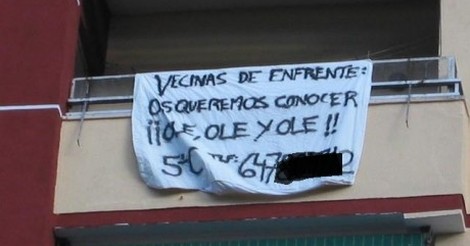 VECINAS DE ENFRENTE:
OS QUEREMOS CONOCER
¡¡OLE, OLE Y OLE!!
5º C